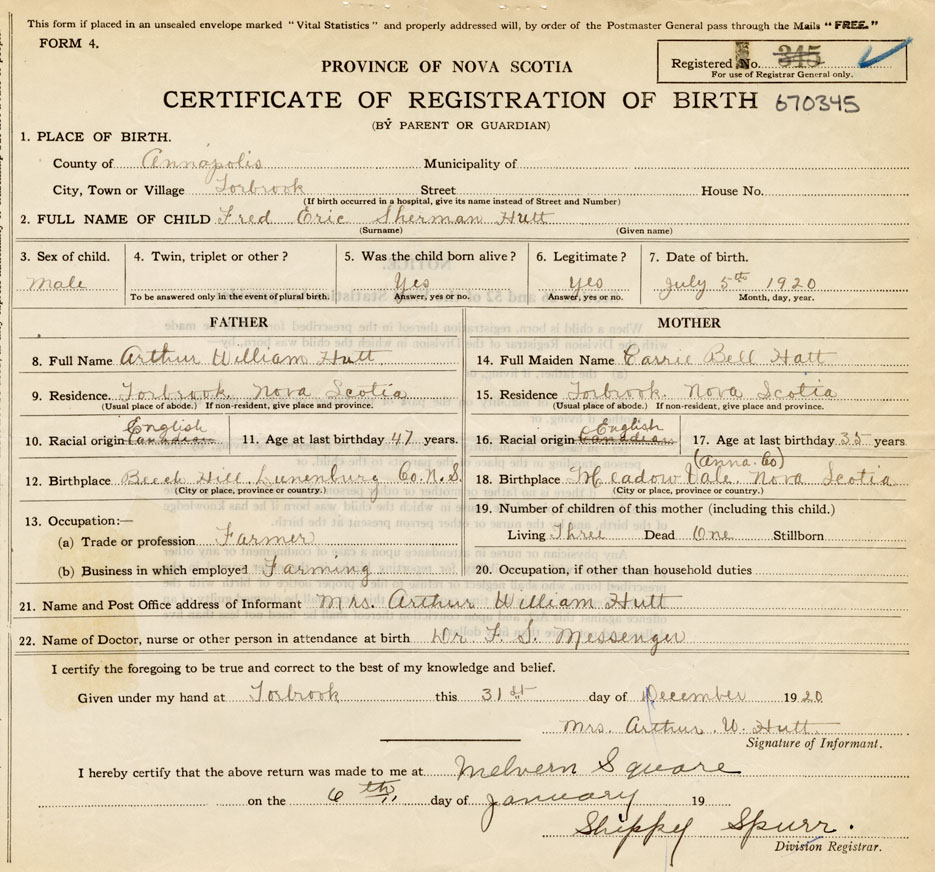 This form if placed in an unsealed envelope marked "Vital Statistics" and properly addressed will, by order of the Postmaster General pass through the Mails "FREE."
FORM 4.
Registered No. 345
For use of Registrar General only.
PROVINCE OF NOVA SCOTIA
CERTIFICATE OF REGISTRATION OF BIRTH 670345
(BY PARENT OR GUARDIAN)
1. PLACE OF BIRTH.
County of Annapolis Municipality of
City, Town or Village Torbrook Street House No.
(If birth occurred in a hospital, give its name instead of Street and Number)
2. FULL NAME OF CHILD Fred Eric Sherman Hutt
(Surname) (Given name)
3. Sex of child. 4. Twin, triplet or other? 5. Was the child born alive? 6. Legitimate? 7. Date of birth.
Male Yes Yes July 5th 1920
To be answered only in the event of plural birth. Answer, yes or no. Answer, yes or no. Month, day, year.
FATHER MOTHER
8. Full Name Arthur William Hutt 14. Full Maiden Name Carrie Bell Hatt
9. Residence. Torbrook Nova Scotia 15. Residence. Torbrook. Nova Scotia
(Usual place of abode.) If non-resident, give place and province. (Usual place of abode.) If non-resident, give place and province.
English English
10. Racial origin Canadian 11. Age at last birthday 47 years. 16. Racial origin Canadian 17. Age at last birthday 35 years
(Anna. Co)
12. Birthplace Beech Hill, Lunenburg Co. N.S. 18. Birthplace Meadow Vale. Nova Scotia
(City or place, province or country.) (City or place, province or country.)
13. Occupation:— 19. Number of children of this mother (including this child.)
(a) Trade or profession Farmer Living Three Dead One Stillborn
(b) Business in which employed Farming 20. Occupation, if other than household duties
21. Name and Post Office address of Informant Mrs. Arthur William Hutt
22. Name of Doctor, nurse or other person in attendance at birth Dr. F. S. Messenger
I certify the foregoing to be true and correct to the best of my knowledge and belief.
Given under my hand at Torbrook this 31st day of December 1920
Mrs. Arthur W. Hutt
Signature of Informant.
I hereby certify that the above return was made to me at Melvern Square
on the 6th day of January 19
Shippy Spurr.
Division Registrar.